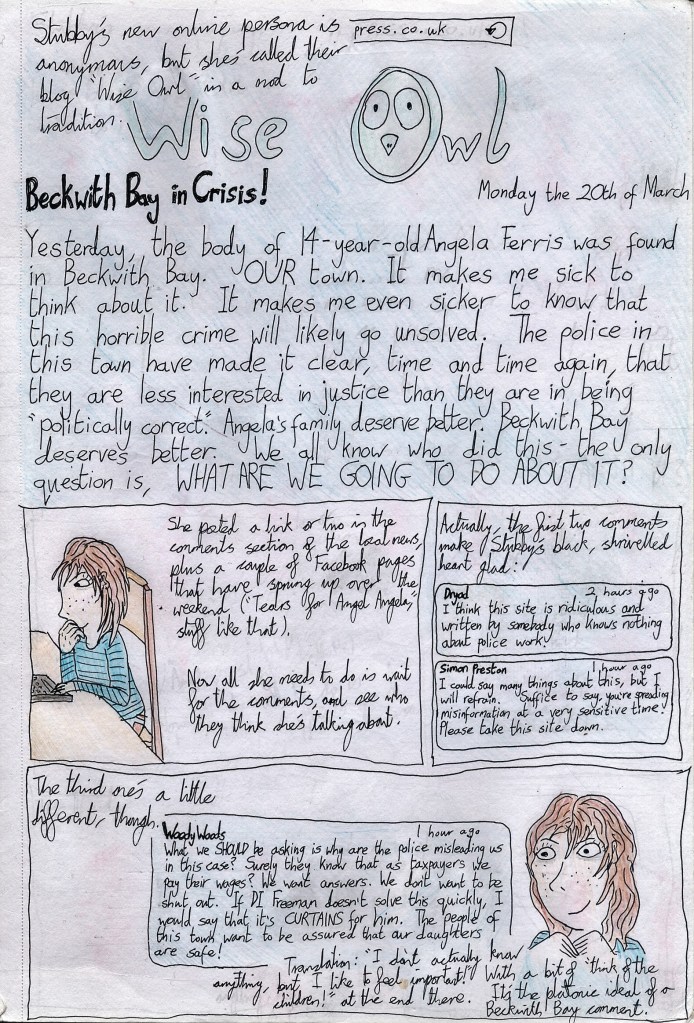 Stubby's new online persona is
anonymous, but she's called their
blog "Wise Owl" in a nod to
tradition.
press.co.uk
Wise Owl
Beckwith Bay in Crisis!
Monday the 20th of March
Yesterday, the body of 14-year-old Angela Ferris was found
in Beckwith Bay. OUR town. It makes me sick to
think about it. It makes me even sicker to know that
this horrible crime will likely go unsolved. The police in
this town have made it clear, time and time again, that
they are less interested in justice than they are in being
"politically correct." Angela's family deserve better. Beckwith Bay
deserves better. We all know who did this - the only
question is, WHAT ARE WE GOING TO DO ABOUT IT?
She posted a link or two in the
comments section of the local news,
plus a couple of Facebook pages
that have sprung up over the
weekend ("Tears for Angel Angela,"
stuff like that).
Now all she needs to do is wait
for the comments, and see who
they think she's talking about.
Actually, the first two comments
make Stubby's black, shrivelled
heart glad:
Dryad
2 hours ago
I think this site is ridiculous and
written by somebody who knows nothing
about police work.
Simon Preston
1 hour ago
I could say many things about this, but I
will refrain. Suffice to say, you're spreading
misinformation at a very sensitive time.
Please take this site down.
The third one's a little
different, though.
WoodyWoods
1 hour ago
What we SHOULD be asking is why are the police misleading us
in this case? Surely they know that as taxpayers we
pay their wages? We want answers. We don't want to be
shut out. If DI Freeman doesn't solve this quickly, I
would say that it's CURTAINS for him. The people of
this town want to be assured that our daughters
are safe!
Translation: "I don't actually know
anything, but I like to feel important!" With a bit of "think of the
children!" at the end there. It's the platonic ideal of a
Beckwith Bay comment.